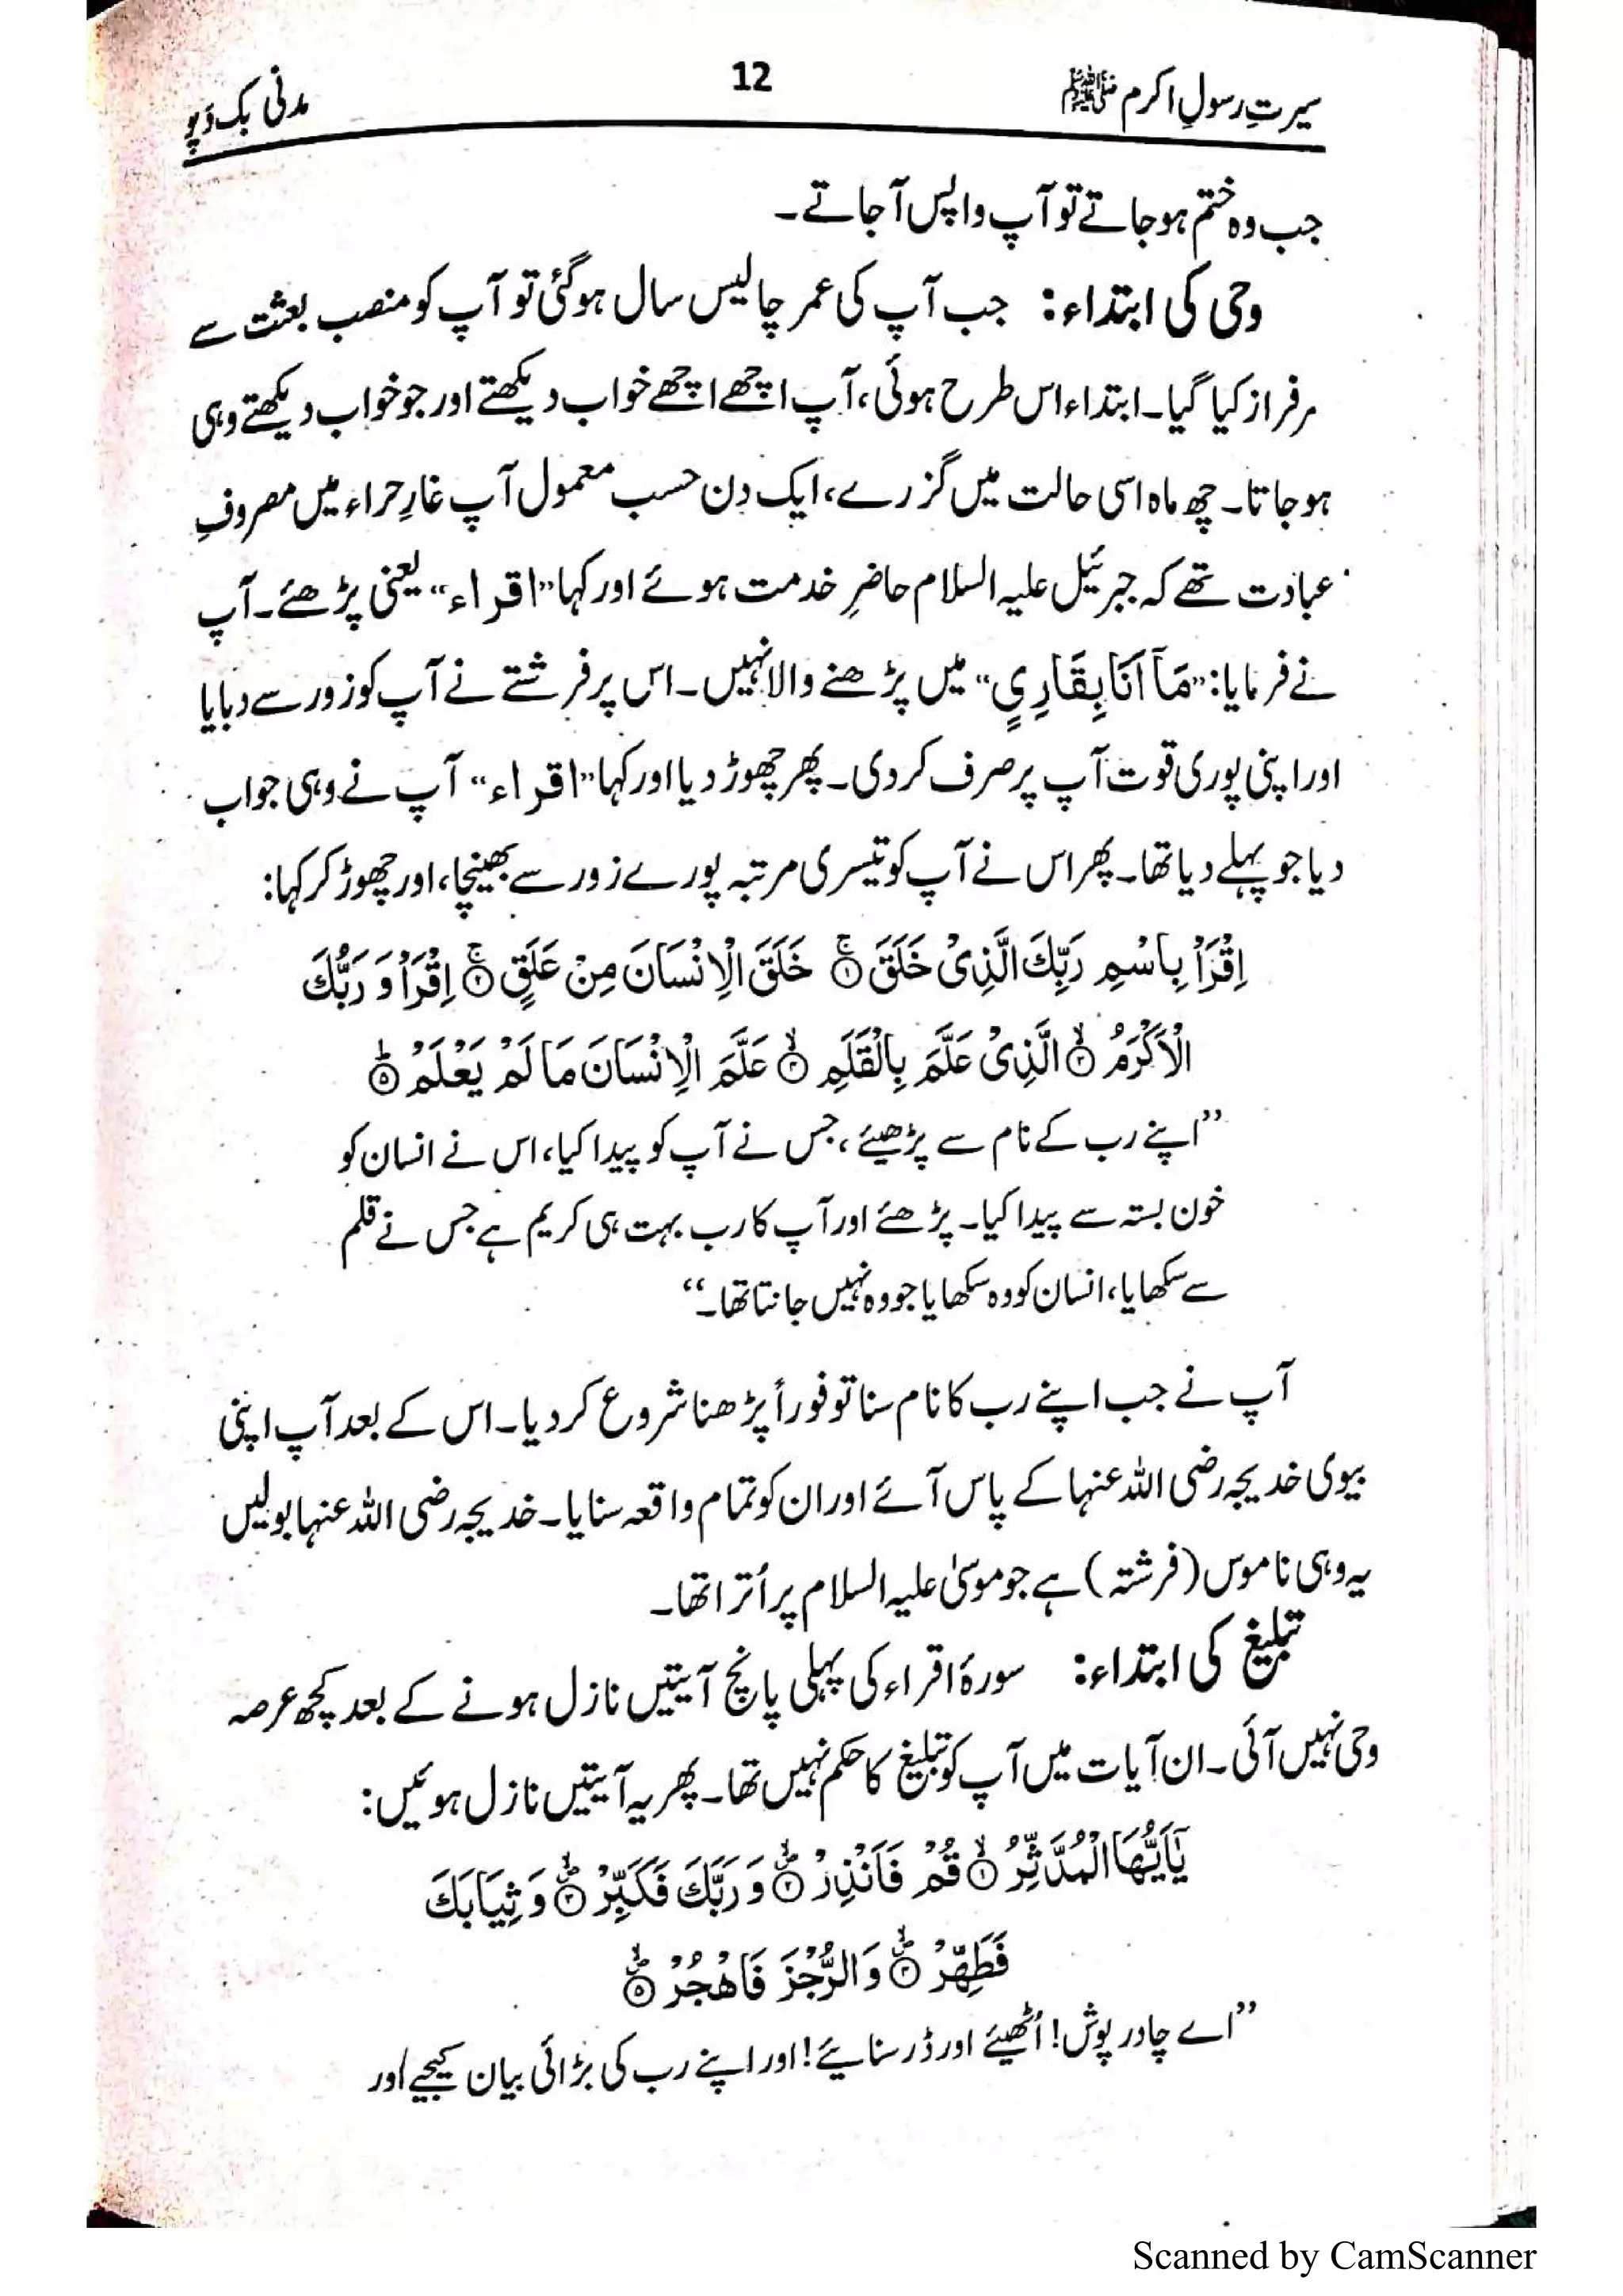 سیرتِ رسولِ اکرم ﷺ 12 مدنی بک ڈپو
جب وہ ختم ہوجاتے تو آپ واپس آجاتے۔
وحی کی ابتداء: جب آپ کی عمر چالیس سال ہوگئی تو آپ کو منصب بعثت سے
سرفراز کیا گیا۔ ابتداء اس طرح ہوئی، آپ اچھے اچھے خواب دیکھتے اور جو خواب دیکھتے وہی
ہوجاتا۔ چھ ماہ اسی حالت میں گزرے، ایک دن حسب معمول آپ غارِ حراء میں مصروفِ
عبادت تھے کہ جبرئیل علیہ السلام حاضرِ خدمت ہوئے اور کہا ”اقراء“ یعنی پڑھئے۔ آپ
نے فرمایا: ”مَآ اَنَا بِقَارِیٍ“ میں پڑھنے والا نہیں۔ اس پر فرشتے نے آپ کو زور سے دبایا
اور اپنی پوری قوت آپ پر صرف کردی۔ پھر چھوڑ دیا اور کہا ”اقراء“ آپ نے وہی جواب
دیا جو پہلے دیا تھا۔ پھر اس نے آپ کو تیسری مرتبہ پورے زور سے بھینچا، اور چھوڑ کر کہا:
اِقْرَاْ بِاسْمِ رَبِّكَ الَّذِیْ خَلَقَ ۚ﴿۱﴾ خَلَقَ الْاِنْسَانَ مِنْ عَلَقٍ ۚ﴿۲﴾ اِقْرَاْ وَ رَبُّكَ
الْاَكْرَمُ ۙ﴿۳﴾ الَّذِیْ عَلَّمَ بِالْقَلَمِ ۙ﴿۴﴾ عَلَّمَ الْاِنْسَانَ مَا لَمْ یَعْلَمْ ؕ﴿۵﴾
”اپنے رب کے نام سے پڑھیئے، جس نے آپ کو پیدا کیا، اس نے انسان کو
خون بستہ سے پیدا کیا۔ پڑھئے اور آپ کا رب بہت ہی کریم ہے جس نے قلم
سے سکھایا، انسان کو وہ سکھایا جو وہ نہیں جانتا تھا۔“
آپ نے جب اپنے رب کا نام سنا تو فوراً پڑھنا شروع کردیا۔ اس کے بعد آپ اپنی
بیوی خدیجہ رضی اللہ عنہا کے پاس آئے اور ان کو تمام واقعہ سنایا۔ خدیجہ رضی اللہ عنہا بولیں
یہ وہی ناموس (فرشتہ) ہے جو موسیٰ علیہ السلام پر اُترا تھا۔
تبلیغ کی ابتداء: سورۂ اقراء کی پہلی پانچ آیتیں نازل ہونے کے بعد کچھ عرصہ
وحی نہیں آئی۔ ان آیات میں آپ کو تبلیغ کا حکم نہیں تھا۔ پھر یہ آیتیں نازل ہوئیں:
یٰۤاَیُّهَا الْمُدَّثِّرُ ۙ﴿۱﴾ قُمْ فَاَنْذِرْ ۪ۙ﴿۲﴾ وَ رَبَّكَ فَكَبِّرْ ۪ۙ﴿۳﴾ وَ ثِیَابَكَ
فَطَهِّرْ ۪ۙ﴿۴﴾ وَ الرُّجْزَ فَاهْجُرْ ۪ۙ﴿۵﴾
”اے چادر پوش! اُٹھیئے اور ڈر سنایئے! اور اپنے رب کی بڑائی بیان کیجیے اور
Scanned by CamScanner